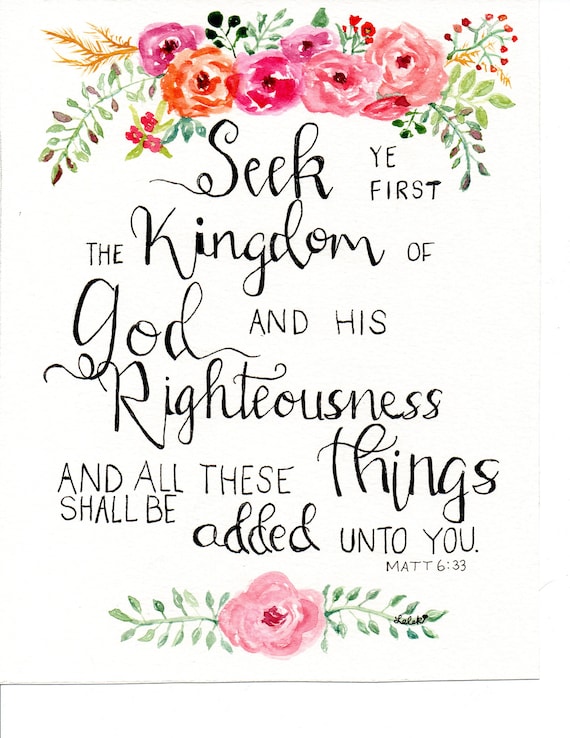 Seek YE FIRST
THE Kingdom OF
God AND HIS
Righteousness
AND ALL THESE things
SHALL BE added UNTO YOU.
MATT 6:33